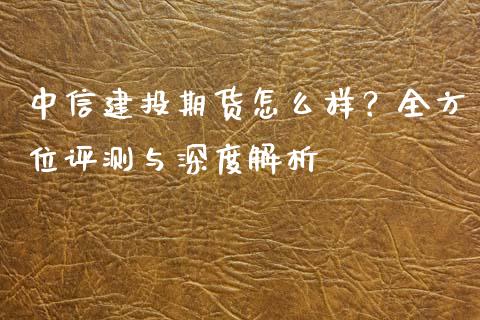 中信建投期货怎么样？全方
位评测与深度解析